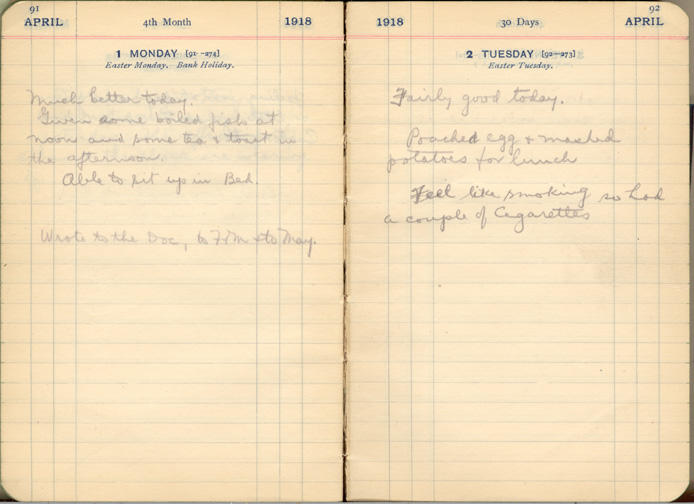 91
APRIL 4th Month 1918
1 MONDAY [91-274]
Easter Monday. Bank Holiday.
Much better today.
Given some boiled fish at
noon and some tea & toast in
the afternoon.
Able to sit up in Bed.
Wrote to the Doc, to & to May.
92
1918 30 Days APRIL
2 TUESDAY [92-273]
Easter Tuesday.
Fairly good today.
Poached egg & mashed
potatoes for lunch
Feel like smoking so had
a couple of Cigarettes